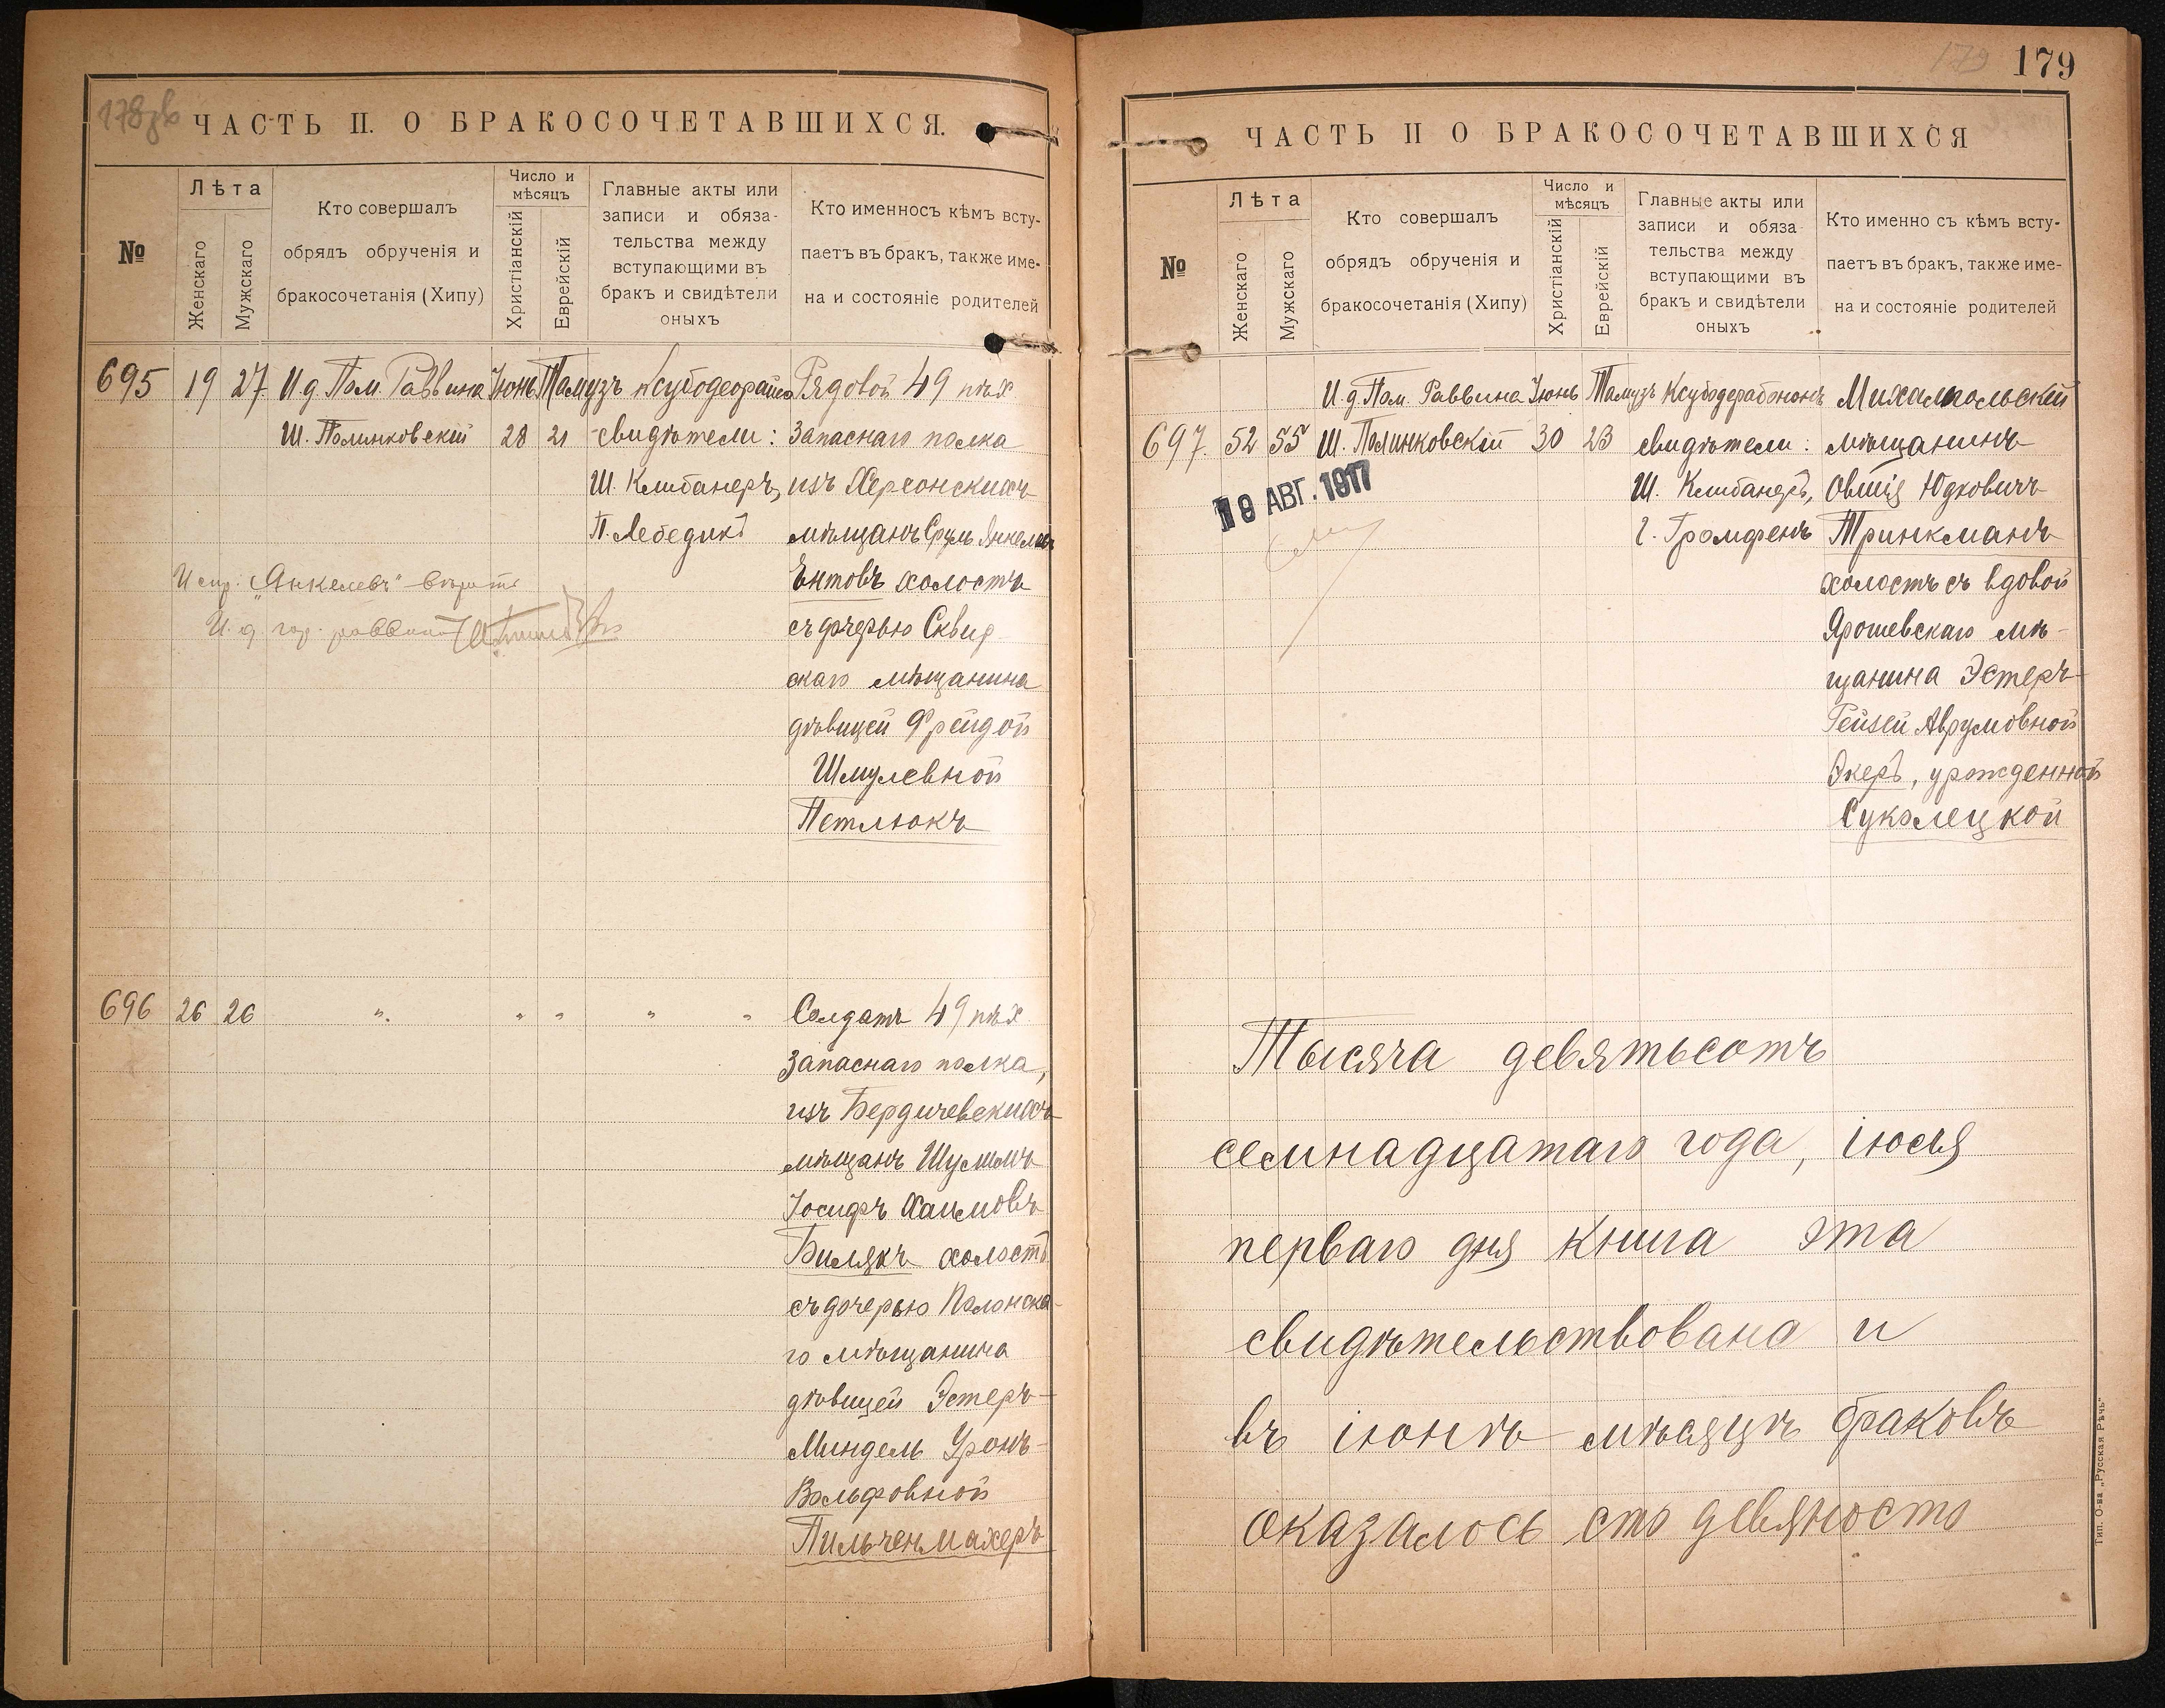 178зв
ЧАСТЬ II. О БРАКОСОЧЕТАВШИХСЯ.
№
Лѣта
Женскаго
Мужскаго
Кто совершалъ
обрядъ обрученія и
бракосочетанія (Хипу)
Число и
мѣсяцъ
Христіанскій
Еврейскій
Главные акты или
записи и обяза-
тельства между
вступающими въ
бракъ и свидѣтели
оныхъ
Кто именносъ кѣмъ всту-
паетъ въ бракъ, также име-
на и состояніе родителей
695 19 27 И д Пом. Раввина Іюнь Тамузъ Рядовой 49 пѣх
Ш. Полинковскій 28 21 свидѣтели: Запаснаго полка
Ш. Клибанеръ, изъ Херсонскихъ
П. Лебедикъ мѣщанъ Сруль Янкелевъ
Ектовъ холостъ
съ дочерью Сквир
скаго мѣщанина
дѣвицей Фрейдой
Шмулевной
Петлюкъ
Испр: „Янкелевъ" вѣрить
И. д. гор. раввина
696 26 26 ". " " " " Солдатъ 49 пѣх
Запаснаго полка,
изъ Бердичевскихъ
мѣщанъ Шулимъ
Іосифъ Хаимовъ
Билякъ холостъ
съ дочерью Полонска-
го мѣщанина
дѣвицей Эстеръ-
Миндель Уронъ-
Вольфовной
Пильченмахеръ
179 179
ЧАСТЬ II О БРАКОСОЧЕТАВШИХСЯ
№
Лѣта
Женскаго
Мужскаго
Кто совершалъ
обрядъ обрученія и
бракосочетанія (Хипу)
Число и
мѣсяцъ
Христіанскій
Еврейскій
Главные акты или
записи и обяза
тельства между
вступающими въ
бракъ и свидѣтели
оныхъ
Кто именно съ кѣмъ всту-
паетъ въ бракъ, также име-
на и состояніе родителей
И. д. Пом. Раввина Іюнь Тамузъ Михалпольскій
697. 52 55 Ш. Полинковскій 30 23 свидѣтели: мѣщанинъ
Ш. Клибанеръ, Овшія Юдковичъ
Г. Тромфенъ Тринкманъ
19 АВГ. 1917
холостъ съ вдовой
Ярошевскаго мѣ-
щанина Эстеръ-
Гейзей Аврумовной
Экеръ, урожденной
Суколецкой
Тысяча девятьсотъ
семнадцатаго года, іюля
перваго дня книга эта
свидѣтельствована и
въ іюнѣ мѣсяцѣ браковъ
оказалось сто девяносто
Тип. О-ва „Русская Рѣчь"